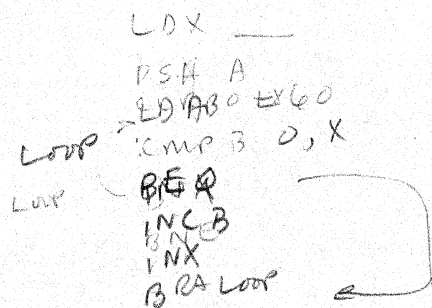 LDX ___
PSH A
LOOP CMP B 0, X
LOOP BEQ
INC B
INX
BRA LOOP